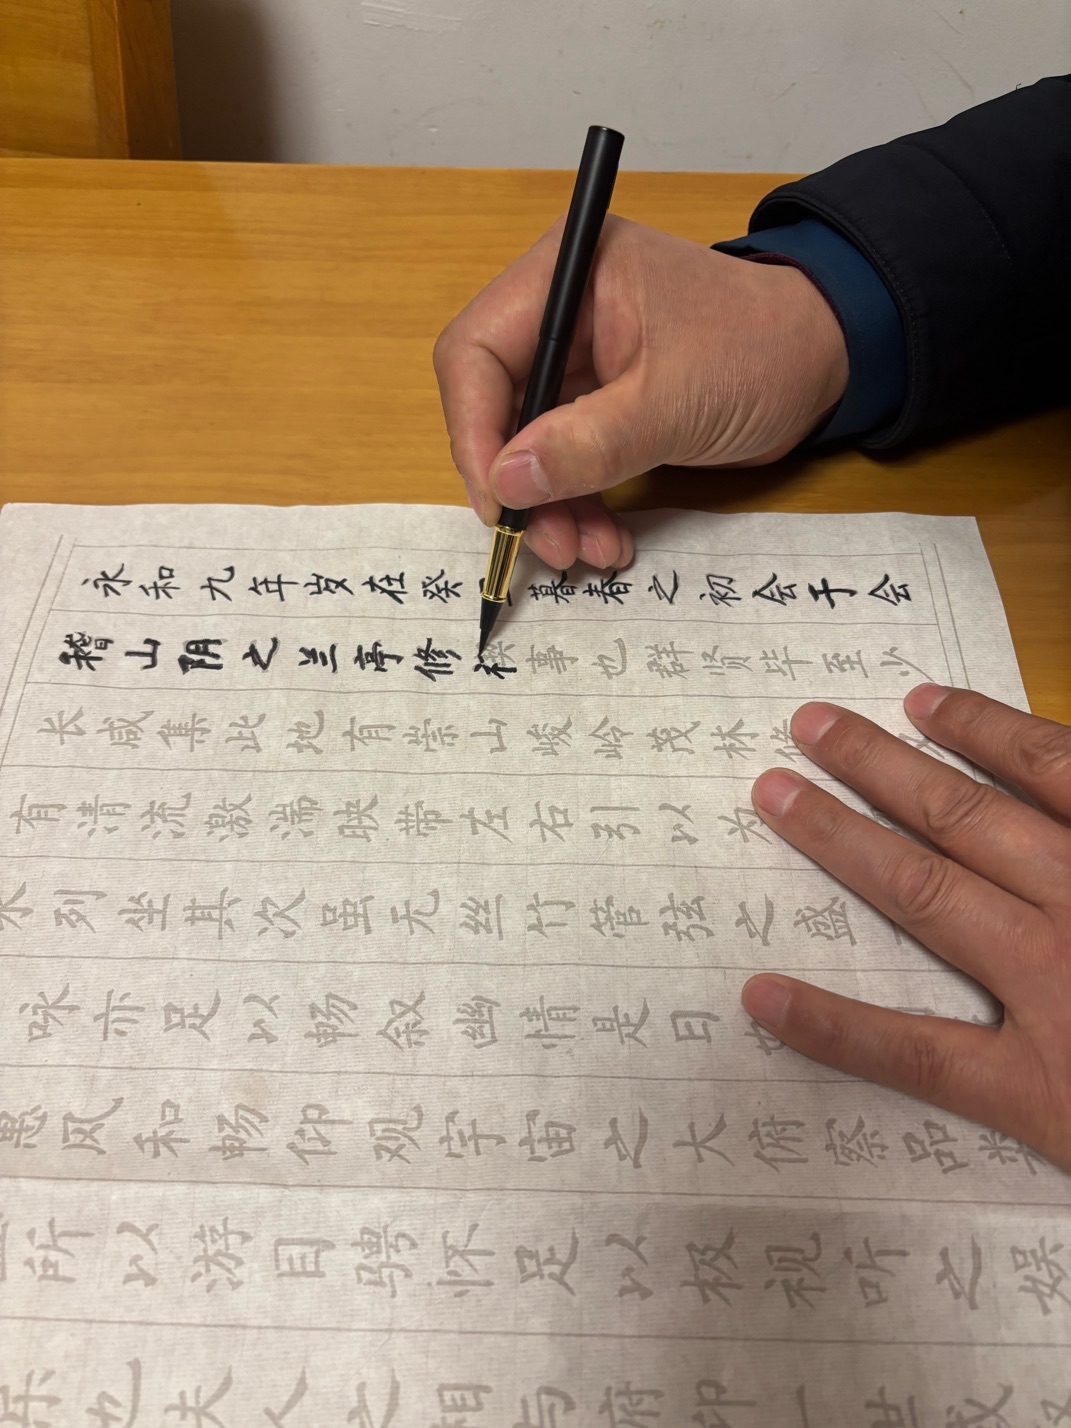 永和九年岁在癸暮春之初会于会
稽山阴之兰亭修禊事也群贤毕至少
长咸集此地有崇山峻岭茂林修又
有清流激湍映带左右引以为
列坐其次虽无丝竹管弦之盛
咏亦足以畅叙幽情是日也
惠风和畅仰观宇宙之大俯察品类
所以游目骋怀足以极视听之娱
乐也夫人之相与俯仰一世或